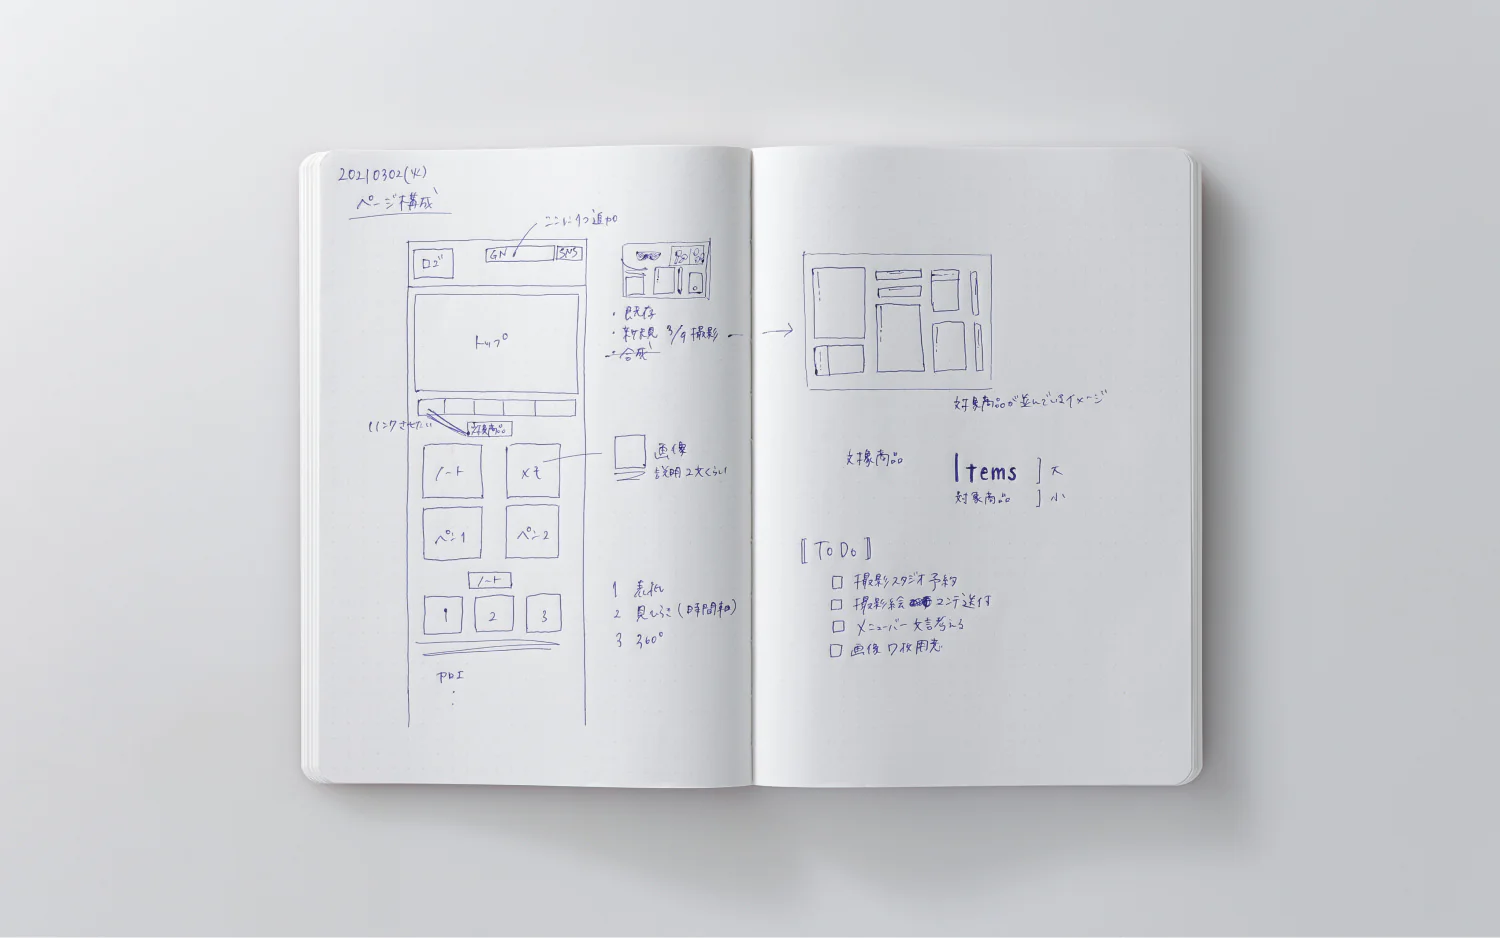 20210302(火)
ページ構成
ここに1つ追加
ロゴ
GN
SNS
トップ
・既存
・新規 3/9 撮影
・合成
リンクさせたい
対象商品
ノート
メモ
画像
説明 2文くらい
ペン1
ペン2
ノート
1
2
3
1 表紙
2 見ひらき(時間軸)
3 360°
PDF
対象商品が並んでいるイメージ
対象商品
Items
大
対象商品
小
[ToDo]
□ 撮影スタジオ予約
□ 撮影絵コンテ送付
□ メニューバー文言考える
□ 画像 7枚用意